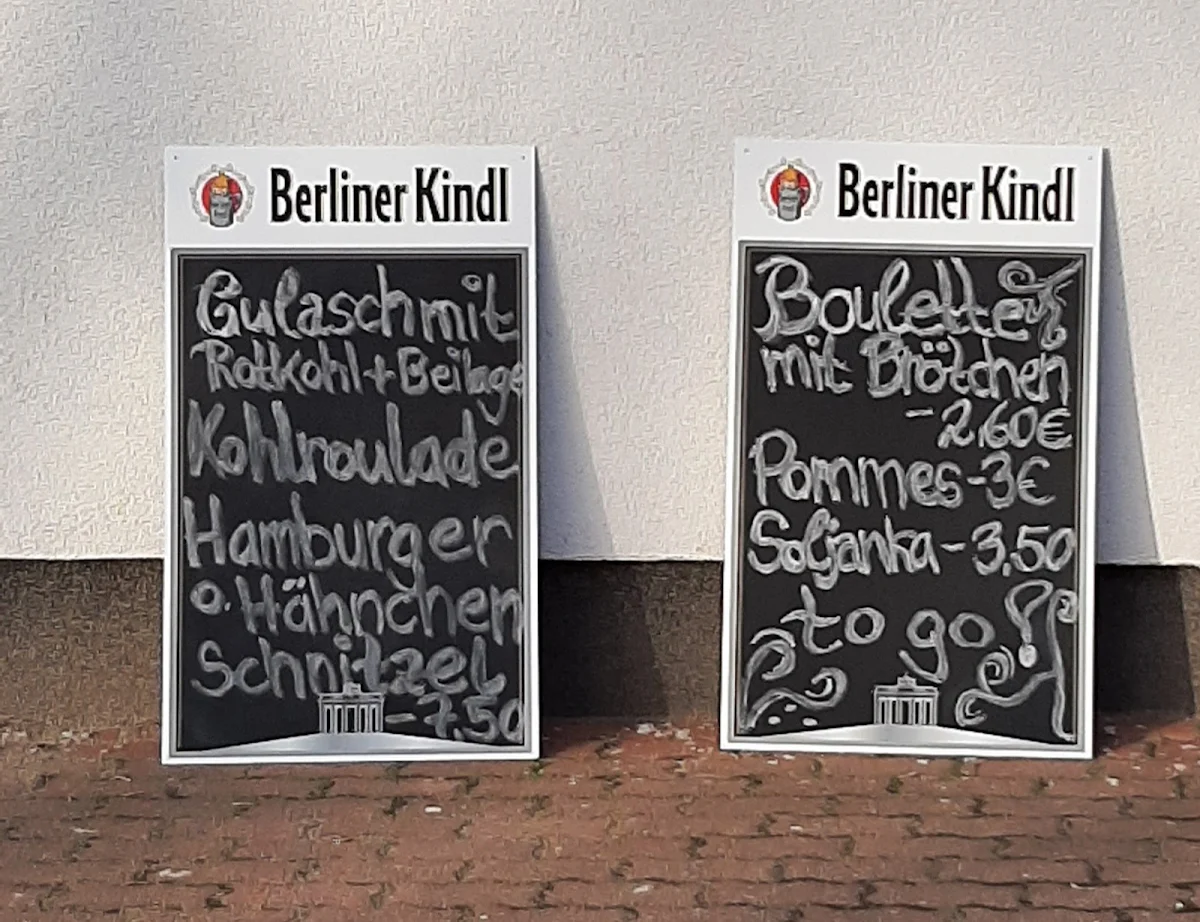 Berliner Kindl
Gulasch mit
Rotkohl + Beilage
Kohlroulade
Hamburger
o. Hähnchen
Schnitzel
- 7,50
Berliner Kindl
Boulette
mit Brötchen
- 2,60€
Pommes - 3€
Soljanka - 3,50
to go!